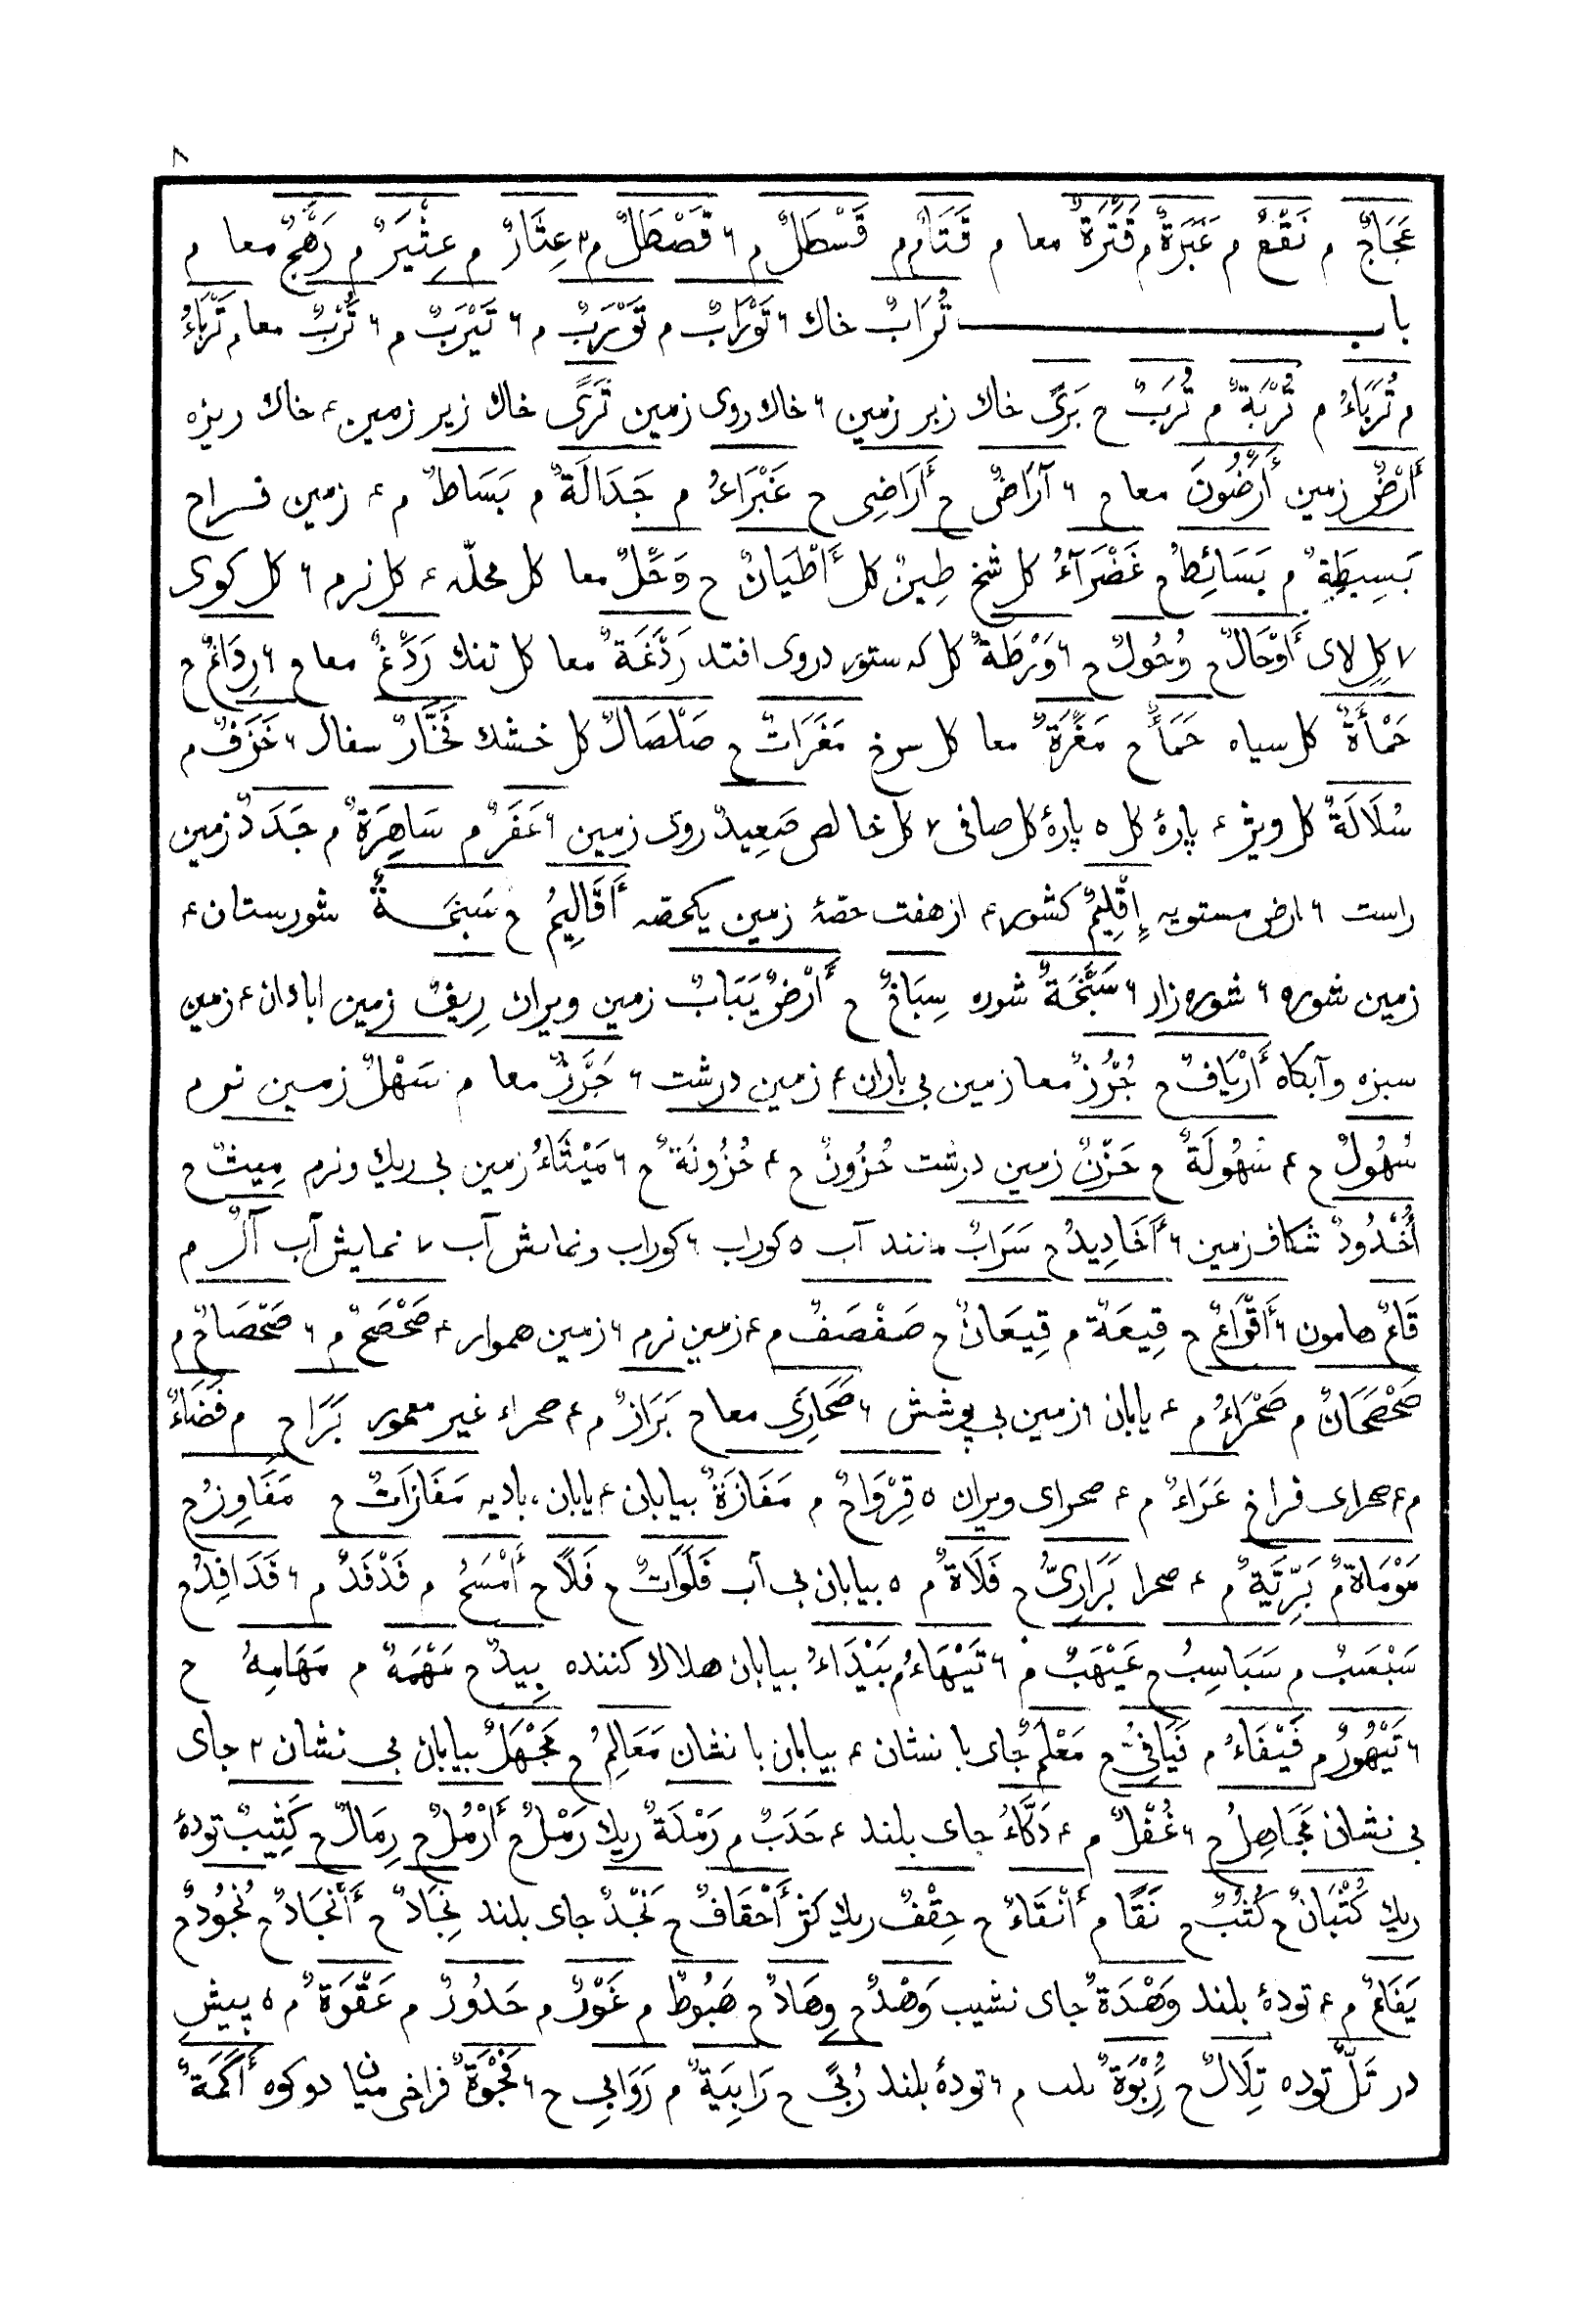 ٨
عَجَاجٌ م نَقْعٌ م غَبَرَةٌ م قَتَرَةٌ معا م قَتَامٌ م قَسْطَلٌ م ٦ قَصْطَلٌ م ٣ عِثَارٌ م عِثْيَرٌ م رَهْجٌ معا م
باب تُرَابٌ خاك ٦ تَوْرَابٌ م تَوْرَبٌ م ٦ تَيْرَبٌ م ٦ تُرْبٌ معا م تَرْبَاءُ
م تُرَبَاءُ م تُرْبَةٌ م تُرَبٌ ح بَرًى خاك زبر زمين ٦ خاك روى زمين ثَرًى خاك زير زمين ۴ خاك ريزه
أَرْضٌ زمين أَرَضُونَ معا ح ٦ آرَاضٌ ح أَرَاضِى ح غَبْرَاءُ م جَدَالَةٌ م بَسَاطٌ م ۴ زمين فراح
بَسِيطَةٌ م بَسَائِطُ ح غَضْرَآءُ كل شخ طِينٌ كل أَطْيَانٌ ح وَحْلٌ معا كل محلّه ۴ كل نرم ٦ كل كوى
٧ كِلِ لاى أَوْحَالٌ ح وُحُولٌ ح ٦ وَرْطَةٌ كل كه ستور دروى افتد رَدْغَةٌ معا كل تنك رَدْغٌ معا ح ٦ رِدَاغٌ ح
حَمْأَةٌ كل سياه حَمَأٌ ح مَغْرَةٌ معا كل سرخ مَغَرَاتٌ ح صَلْصَالٌ كل خشك فَخَّارٌ سفال ٦ خَزَفٌ م
سُلَالَةٌ كل ويژ ۴ پارۀ كل ٥ پارۀ كل صافى ٧ كل خالص صَعِيدٌ روى زمين ٦ عَفَرٌ م سَاهِرَةٌ م جَدَدٌ زمين
راست ٦ ارض مستويه إِقْلِيمٌ كشور ۴ از هفت حصّۀ زمين يكحصه أَقَالِيمُ ح سَبَخَةٌ شورستان ۴
زمين شوره ٦ شوره زار ٦ سَبْخَةٌ شوره سِبَاخٌ ح أَرْضٌ يَبَابٌ زمين ويران رِيفٌ زمين ابادان ۴ زمين
سبزه وآبكاه أَرْيَافٌ ح جُرْزٌ معا زمين بى باران ۴ زمين درشت ٦ جَرْزٌ معا م سَهْلٌ زمين نرم
سُهُولٌ ح ۴ سُهُولَةٌ ح حَزْنٌ زمين درشت حُزُونٌ ح ۴ حُزُونَةٌ ح ٦ مَيْثَاءُ زمين بى ريك ونرم مِيثٌ ح
أُخْدُودٌ شكاف زمين ٦ أَخَادِيدُ ح سَرَابٌ مانند آب ٥ كوراب ٦ كوراب ونمايش آب ٧ نمايش آب آلٌ م
قَاعٌ هامون ٦ أَقْوَاعٌ ح قِيعَةٌ م قِيعَانٌ ح صَفْصَفٌ م ۴ زمين نرم ٦ زمين هموار ۴ صَحْصَحٌ م ٦ صَحْصَاحٌ م
صَحْصَحَانٌ م صَحْرَاءُ م ۴ يابان ٦ زمين بى پوشش ٦ صَحَارِى معا ح بَرَازٌ م ۴ صحراء غير معمور بَرَاح م فَضَاءٌ
م ۴ صحراى فراخ عَرَاءٌ م ۴ صحراى ويران ٥ قِرْوَاحٌ م مَفَازَةٌ بيابان ۴ يابان، باديه مَفَازَاتٌ ح مَفَاوِزُ ح
مَوْمَاةٌ م بَرِّيَّةٌ م ۴ صحرا بَرَارِىُّ ح فَلَاةٌ م ٥ بيابان بى آب فَلَوَاتٌ ح فَلًا ح أَمْسَحُ م فَدْفَدٌ م ٦ فَدَافِدُ ح
سَبْسَبٌ م سَبَاسِبُ ح غَيْهَبٌ م ٦ تَيْهَاءُ م بَيْدَاءُ بيابان هلاك كننده بِيدٌ ح مَهْمَهٌ م مَهَامِهُ ح
٦ تَيْهُورٌ م فَيْفَاءُ م فَيَافِىُّ ح مَعْلَمٌ جاى با نشان ۴ بيابان با نشان مَعَالِمُ ح مَجْهَلٌ بيابان بى نشان ۳ جاى
بى نشان مَجَاهِلُ ح ٦ غُفْلٌ م ۴ دَكَّاءُ جاى بلند ۴ حَدَبٌ م رَمْلَةٌ ريك رَمْلٌ ح أَرْمُلٌ ح رِمَالٌ ح كَثِيبٌ تودۀ
ريك كُثْبَانٌ ح كُثُبٌ ح نَقًا م أَنْقَاءٌ ح حِقْفٌ ريك كژ أَحْقَافٌ ح نَجْدٌ جاى بلند نِجَادٌ ح أَنْجَادٌ ح نُجُودٌ ح
يَفَاعٌ م ۴ تودۀ بلند وَهْدَةٌ جاى نشيب وَهْدٌ ح وِهَادٌ ح هَبُوطٌ م غَوْرٌ م حَدُورٌ م عَقْوَةٌ م ٥ پيشِ
در تَلٌّ توده تِلَالٌ ح رَبْوَةٌ م ٦ تودۀ بلند رُبًى ح رَابِيَةٌ م رَوَابِى ح ٦ فَجْوَةٌ فراخى ميان دو كوه أَكَمَةٌ